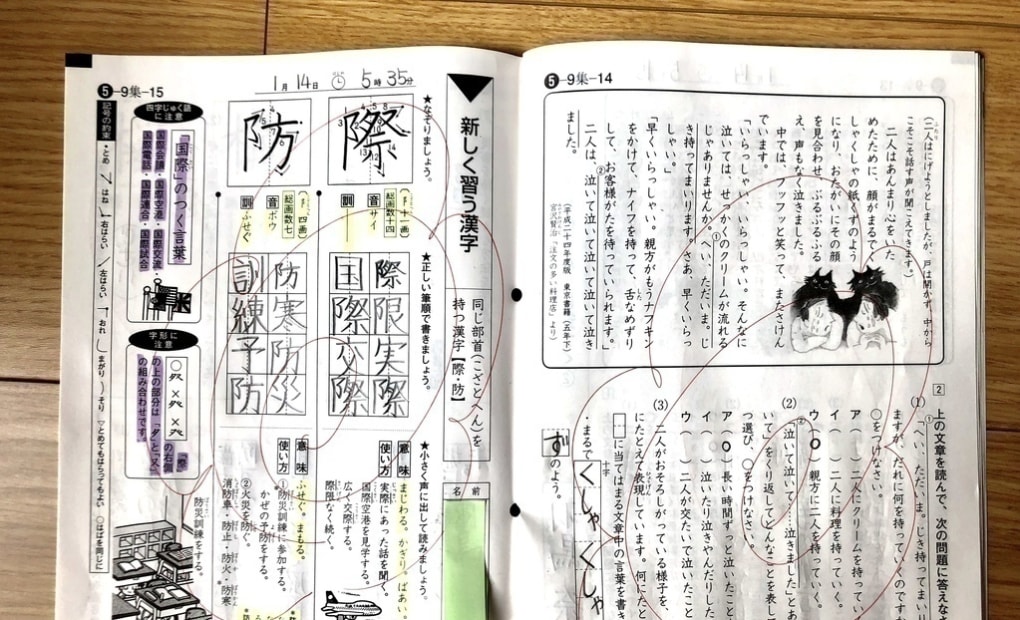 ❺-9集-14
(二人はにげようとしましたが、戸は開かず、中から
こそこそ話す声が聞こえてきます。)
二人はあんまり心をいた
めたために、顔がまるでく
しゃくしゃの紙くずのよう
になり、おたがいにその顔
を見合わせ、ぶるぶるふる
え、声もなく泣きました。
中では、フッフッと笑って、またさけん
でいます。
「いらっしゃい、いらっしゃい。そんなに
泣いては、せっかくのクリームが流れる
じゃありませんか。へい、ただいま。じ
き持ってまいります。さあ、早くいらっ
しゃい。」
「早くいらっしゃい。親方がもうナフキン
をかけて、ナイフを持って、舌なめずり
して、お客様がたを待っていられます。」
二人は、泣いて泣いて泣いて泣いて泣き
ました。
(平成二十四年度版 東京書籍(五年下)
宮沢賢治「注文の多い料理店」より)
2 上の文章を読んで、次の問題に答えな
(1) 「へい、ただいま。じき持ってまいり
ますが、だれに何を持っていくのですか
○をつけなさい。
ア( )二人にクリームを持ってい
イ( )二人に料理を持っていく。
ウ(○)親方に二人を持っていく。
(2) 「泣いて泣いて……泣きました」とあ
いて」をくり返してどんなことを表し
つ選び、○をつけなさい。
ア(○)長い時間ずっと泣いたこと
イ( )泣いたり泣きやんだりした
ウ( )二人が交たいで泣いたこと
(3) 二人がおそろしがっている様子を、
にたとえて表現しています。何にたと
□に当てはまる文章中の言葉を書き
・まるで くしゃくしゃ
ず のよう。
❺-9集-15
1月14日 5時35分
新しく習う漢字
同じ部首(こざとへん)を
持つ漢字【際・防】
名前
★なぞりましょう。
際
(阝 十一画)
総画数十四
音 サイ
訓
防
(阝 四画)
総画数七
音 ボウ
訓 ふせぐ
★正しい筆順で書きましょう。
際限実際
国際交際
防寒防災
訓練予防
★小さく声に出して読みましょう。
意味 まじわる。かぎり。ばあい。
使い方 実際にあった話を聞く。
国際空港を見学する。
広く交際する。
際限なく続く。
意味 ふせぐ。まもる。
使い方 ①防災訓練に参加する。
かぜの予防をする。
②火災を防ぐ。
消防車・防止・防火・防寒
防災訓練をする。
四字じゅく語に注意
「国際」のつく言葉
国際会議・国際空港・国際交流・
国際電話・国際連合・国際試合
字形に注意
「祭」の右側
の上の部分は「夕」と「又」
の組み合わせです。
記号の約束 ・とめ はね 右はらい 左はらい おれ まがり そり とめてもはらってもよい ○はばを同じに